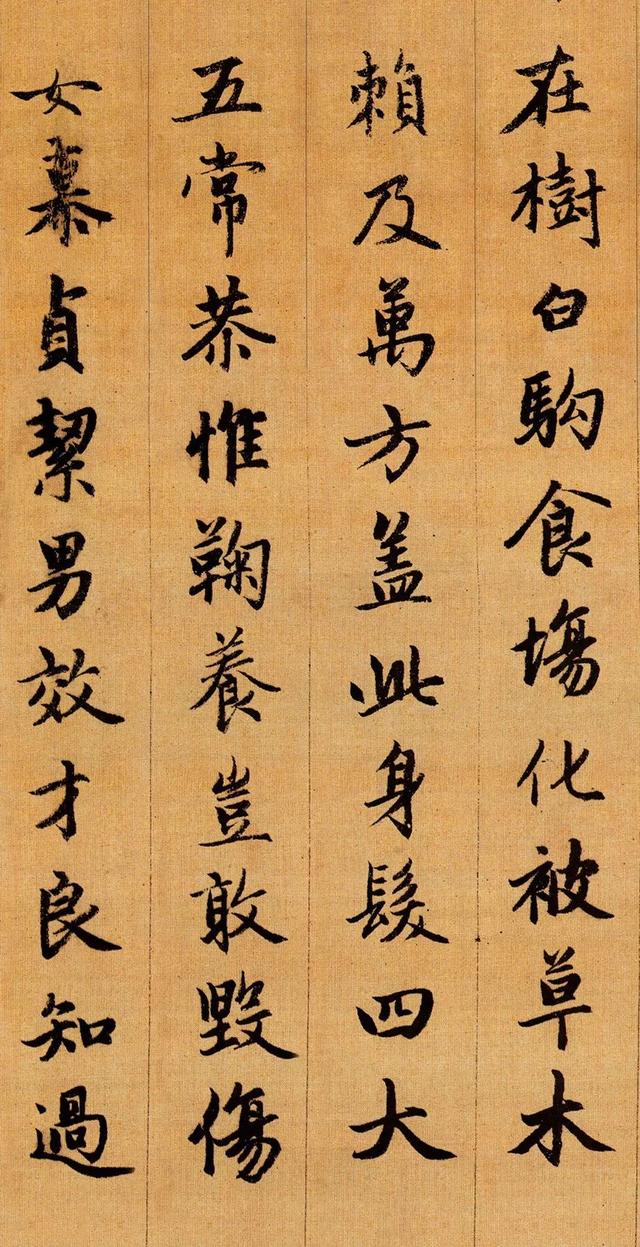 在樹白駒食場化被草木
賴及萬方盖此身髮四大
五常恭惟鞠養豈敢毀傷
女慕貞絜男效才良知過